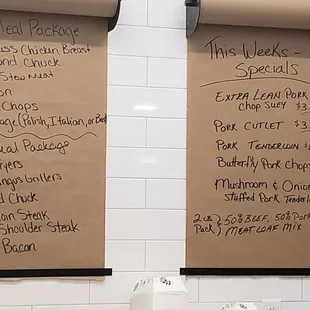 Meal Package
ss Chicken Breast
ond Chuck
Stew Meat
on
Chops
age (Polish, Italian, or B
ual Package
ryers
ngus brillers
d Chuck
oin Steak
Shoulder Steak
Bacon
This Week's -
Specials
Extra Lean Pork
Chop Suey $3
Pork Cutlet $3
Pork Tenderloin $
Butterfly Pork Chops
Mushroom & Onion
Stuffed Pork Tenderlo
2 LB 50% Beef, 50% Por
Pack Meat Loaf Mix